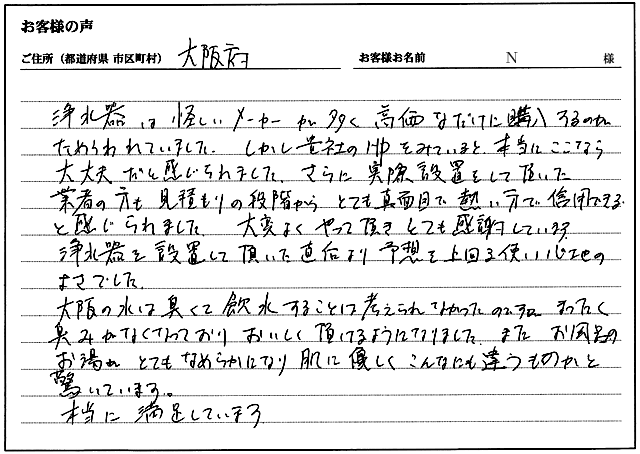 お客様の声
ご住所（都道府県 市区町村） 大阪府 お客様お名前 N 様
浄水器は怪しいメーカーが多く高価なだけに購入するのが
ためらわれていました。しかし貴社のHPをみていると、本当にここなら
大丈夫だと感じられました。さらに実際設置をして頂いた
業者の方も見積もりの段階からとても真面目で熱い方で信用できる
と感じられました。大変よくやって頂きとても感謝しています。
浄水器を設置して頂いた直後より予想を上回る使い心地の
よさでした。
大阪の水は臭くて飲水することは考えられなかったのですが、まったく
臭みがなくなっており おいしく頂けるようになりました。また お風呂の
お湯がとてもなめらかになり肌に優しくこんなにも違うものかと
驚いています。
本当に満足しています